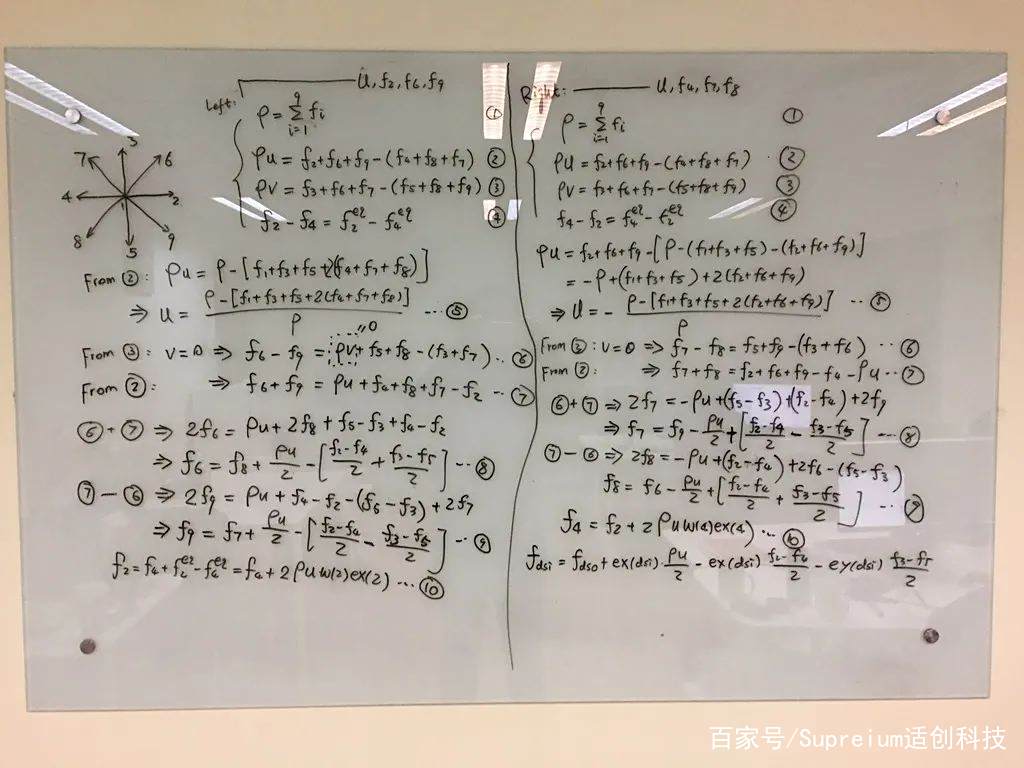 Left: U, f2, f6, f9
ρ = Σ_{i=1}^{9} fi ①
ρu = f2+f6+f9-(f4+f8+f7) ②
ρv = f3+f6+f7-(f5+f8+f9) ③
f2-f4 = f2^eq - f4^eq ④
3
7 6
4 1 2
8 9
5
From ②: ρu = ρ-[f1+f3+f5+2(f4+f7+f8)]
⇒ u = (ρ-[f1+f3+f5+2(f4+f7+f8)])/ρ ...⑤
From ③: v=0 ⇒ f6-f9 = ρv+f5+f8-(f3+f7) ...⑥
"0
From ②: ⇒ f6+f9 = ρu+f4+f8+f7-f2 ...⑦
⑥+⑦ ⇒ 2f6 = ρu+2f8+f5-f3+f4-f2
⇒ f6 = f8 + ρu/2 - [(f2-f4)/2 + (f3-f5)/2] ...⑧
⑦-⑥ ⇒ 2f9 = ρu+f4-f2-(f5-f3)+2f7
⇒ f9 = f7 + ρu/2 - [(f2-f4)/2 - (f3-f5)/2] ...⑨
f2 = f4+f2^eq-f4^eq = f4+2ρu w(2)ex(2) ...⑩
Right: U, f4, f7, f8
ρ = Σ_{i=1}^{9} fi ①
ρu = f2+f6+f9-(f4+f8+f7) ②
ρv = f3+f6+f7-(f5+f8+f9) ③
f4-f2 = f4^eq - f2^eq ④
ρu = f2+f6+f9-[ρ-(f1+f3+f5)-(f2+f6+f9)]
= -ρ+(f1+f3+f5)+2(f2+f6+f9)
⇒ u = -(ρ-[f1+f3+f5+2(f2+f6+f9)])/ρ ...⑤
From ③: v=0 ⇒ f7-f8 = f5+f9-(f3+f6) ...⑥
From ②: ⇒ f7+f8 = f2+f6+f9-f4-ρu ...⑦
⑥+⑦ ⇒ 2f7 = -ρu+(f5-f3)+(f2-f4)+2f9
⇒ f7 = f9 - ρu/2 + [(f2-f4)/2 - (f3-f5)/2] ...⑧
⑦-⑥ ⇒ 2f8 = -ρu+(f2-f4)+2f6-(f5-f3)
f8 = f6 - ρu/2 + [(f2-f4)/2 + (f3-f5)/2] ...⑨
f4 = f2+2ρu w(4)ex(4) ...⑩
fdsi = fdso + ex(dsi)·ρu/2 - ex(dsi) (f2-f4)/2 - ey(dsi) (f3-f5)/2
百家号/Supreium适创科技